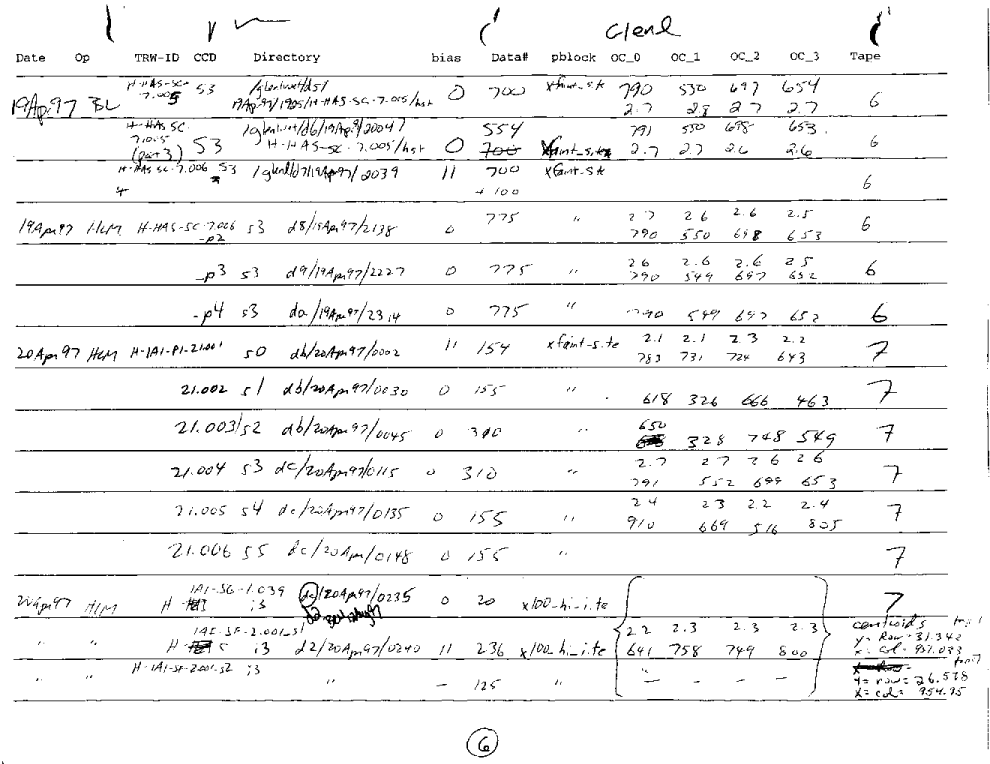 Clend
Date Op TRW-ID CCD Directory bias Data# pblock OC_0 OC_1 OC_2 OC_3 Tape
H-HAS-SC- 7.005 S3 0 700 790 530 697 654
19Apr97 BL 19Apr97/1905/H-HAS-SC-7.015/hst 2.7 2.8 2.7 2.7 6
H-HAS SC 7.005 (part 3) S3 H-HAS-SC-7.005/hst 0 554 791 550 698 653
700 2.7 2.7 2.6 2.6 6
H-HAS SC-7.006 S3 11 700 xfaint-s.te
+ 100 6
19Apr97 HLM H-HAS-SC-7.006 -p2 s3 d8/19Apr97/2138 0 775 " 2.7 2.6 2.6 2.5 6
790 550 698 653
-p3 s3 d9/19Apr97/2227 0 775 " 2.6 2.6 2.6 2.5 6
790 549 697 652
-p4 s3 da/19Apr97/2314 0 775 " 790 549 697 652 6
20Apr97 HLM H-IAI-PI-21.001 s0 db/20Apr97/0002 11 154 xfaint-s.te 2.1 2.1 2.3 2.2 7
783 731 724 643
21.002 s1 db/20Apr97/0030 0 155 " 618 326 666 463 7
21.003/s2 db/20Apr97/0045 0 300 " 650 328 748 549 7
21.004 s3 dc/20Apr97/0115 0 310 " 2.7 2.7 2.6 2.6 7
791 552 699 653
21.005 s4 dc/20Apr97/0135 0 155 " 2.4 2.3 2.2 2.4 7
910 669 516 805
21.006 s5 dc/20Apr/0148 0 155 " 7
20Apr97 HLM H IAI-SG-1.039 i3 dc/20Apr97/0235 0 20 x100_hi_i.te 7
" " H IAI-SF-2.001_s1 i3 d2/20Apr97/0240 11 236 x100_hi_i.te 2.2 2.3 2.3 2.3
641 758 749 800
centroids
y= Row= 31.342
x= col= 957.033
" " H-IAI-SF-2.001-s2 i3 " - 125 " - - - -
y= row= 26.538
x= col= 954.95
6